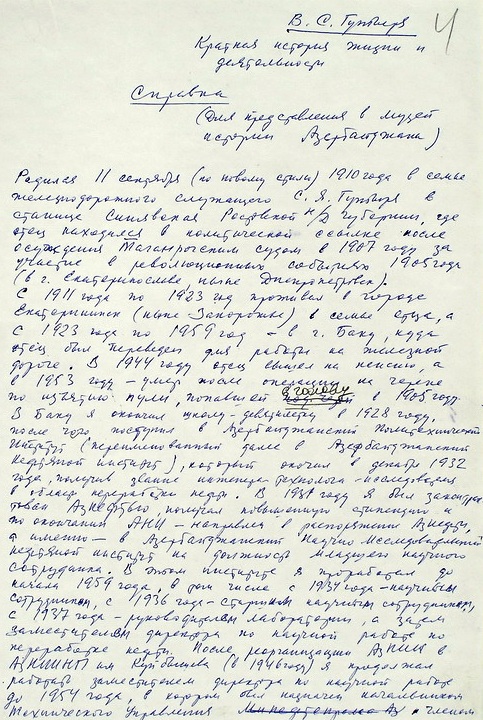 В. С. Гутыря
4
Краткая история жизни и
деятельности
Справка
(Для представления в музей
истории Азербайджана)
Родился 11 сентября (по новому стилю) 1910 года в семье
железнодорожного служащего С. Я. Гутыря в
станице Синявская Ростовской н/Д губернии, где
отец находился в политической ссылке после
осуждения Таганрогским судом в 1907 году за
участие в революционных событиях 1905 года
(в г. Екатеринославе, ныне Днепропетровск).
С 1911 года по 1923 год проживал в городе
(ныне Запорожье) в семье отца, а
с 1923 года по 1959 год - в г. Баку, куда
отец был переведен для работы на железной
дороге. В 1944 году отец вышел на пенсию, а
в 1953 году - умер после операции на черепе
по изъятию пули, попавшей в голову в 1905 году.
В Баку я окончил школу-девятилетку в 1928 году,
после чего поступил в Азербайджанский Политехнический
Институт (переименованный далее в Азербайджанский
Нефтяной институт), который окончил в декабре 1932
года, получив звание инженера-технолога-исследователя
в области переработки нефти. В 1931 году я был законтрак-
тован Азнефтью, получал повышенную стипендию и
по окончании АНИ - направлен в распоряжение Азнефти,
а именно - в Азербайджанский Научно-Исследовательский
нефтяной институт на должность младшего научного
сотрудника. В этом институте я проработал до
начала 1959 года, в том числе с 1934 года - научным
сотрудником, с 1936 года - старшим научным сотрудником,
с 1937 года - руководителем лаборатории, а затем
заместителем директора по научной работе по
переработке нефти. После реорганизации АзНИИ в
АзНИИНП им Куйбышева (в 1946 году) я продолжал
работать заместителем директора по научной работе
до 1954 года, в котором был назначен начальником
Технического Управления Аз и членом